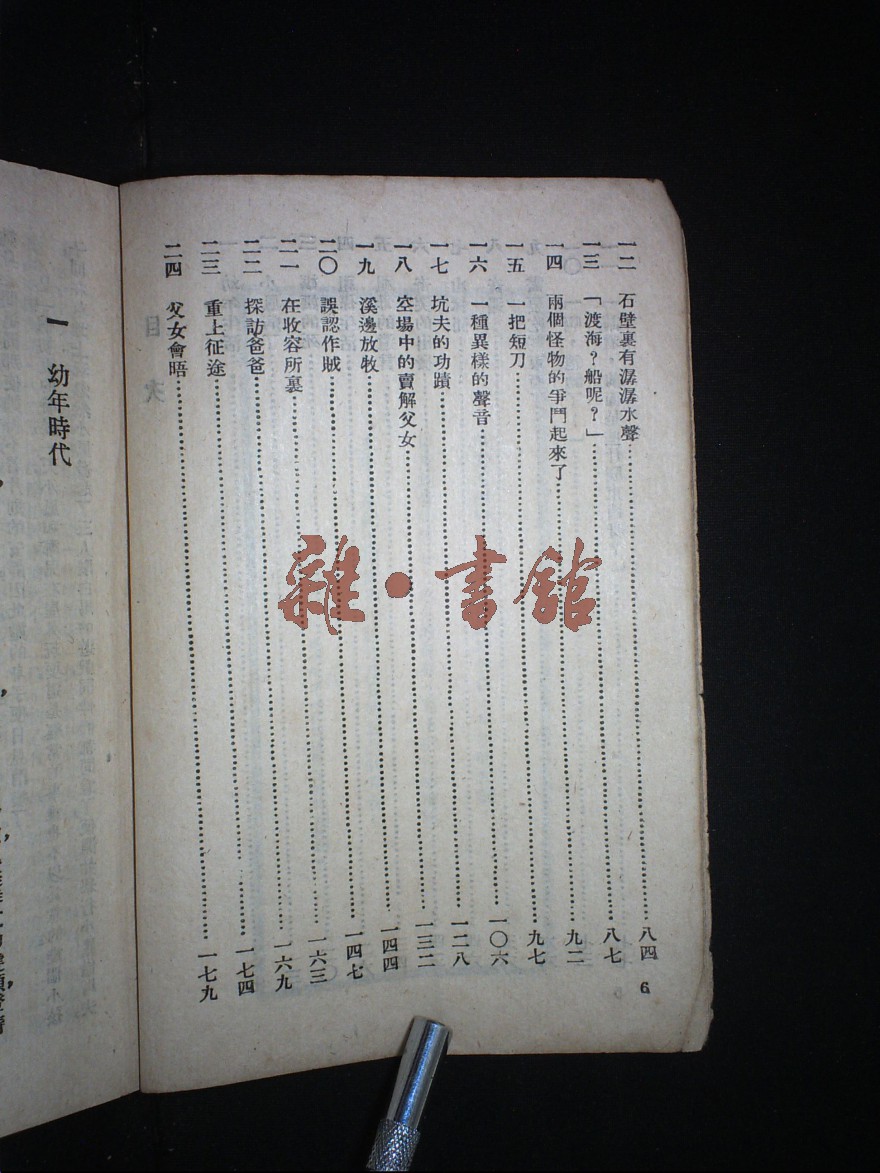 一二 石壁裏有潺潺水聲……八四
一三 「渡海？船呢？」……八七
一四 兩個怪物的爭鬥起來了……九二
一五 一把短刀……九七
一六 一種異樣的聲音……一〇六
一七 坑夫的功蹟……一二八
一八 空場中的賣解父女……一三二
一九 溪邊放牧……一四四
二〇 誤認作賊……一四七
二一 在收容所裏……一六三
二二 探訪爸爸……一六九
二三 重上征途……一七四
二四 父女會晤……一七九
6
一 幼年時代
雜·書館